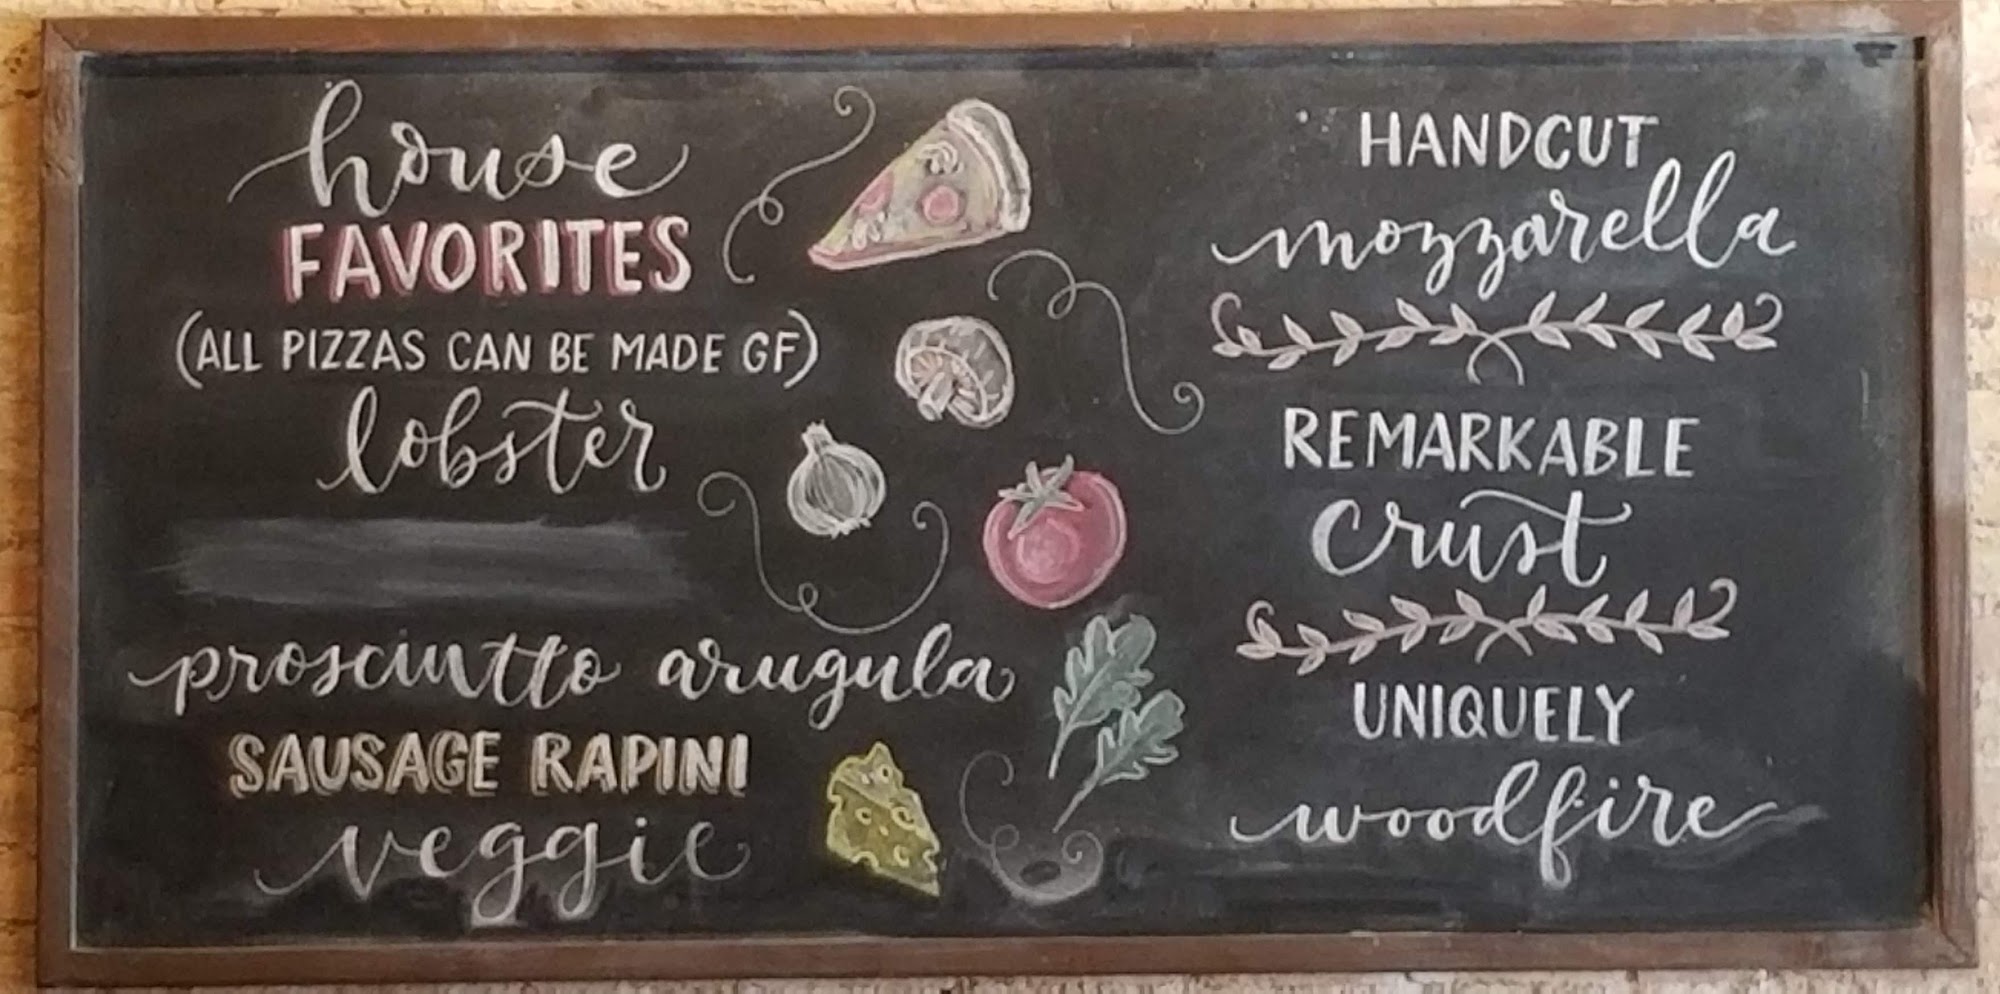 house
FAVORITES
(ALL PIZZAS CAN BE MADE GF)
lobster
prosciutto arugula
SAUSAGE RAPINI
veggie
HANDCUT
mozzarella
REMARKABLE
crust
UNIQUELY
woodfire